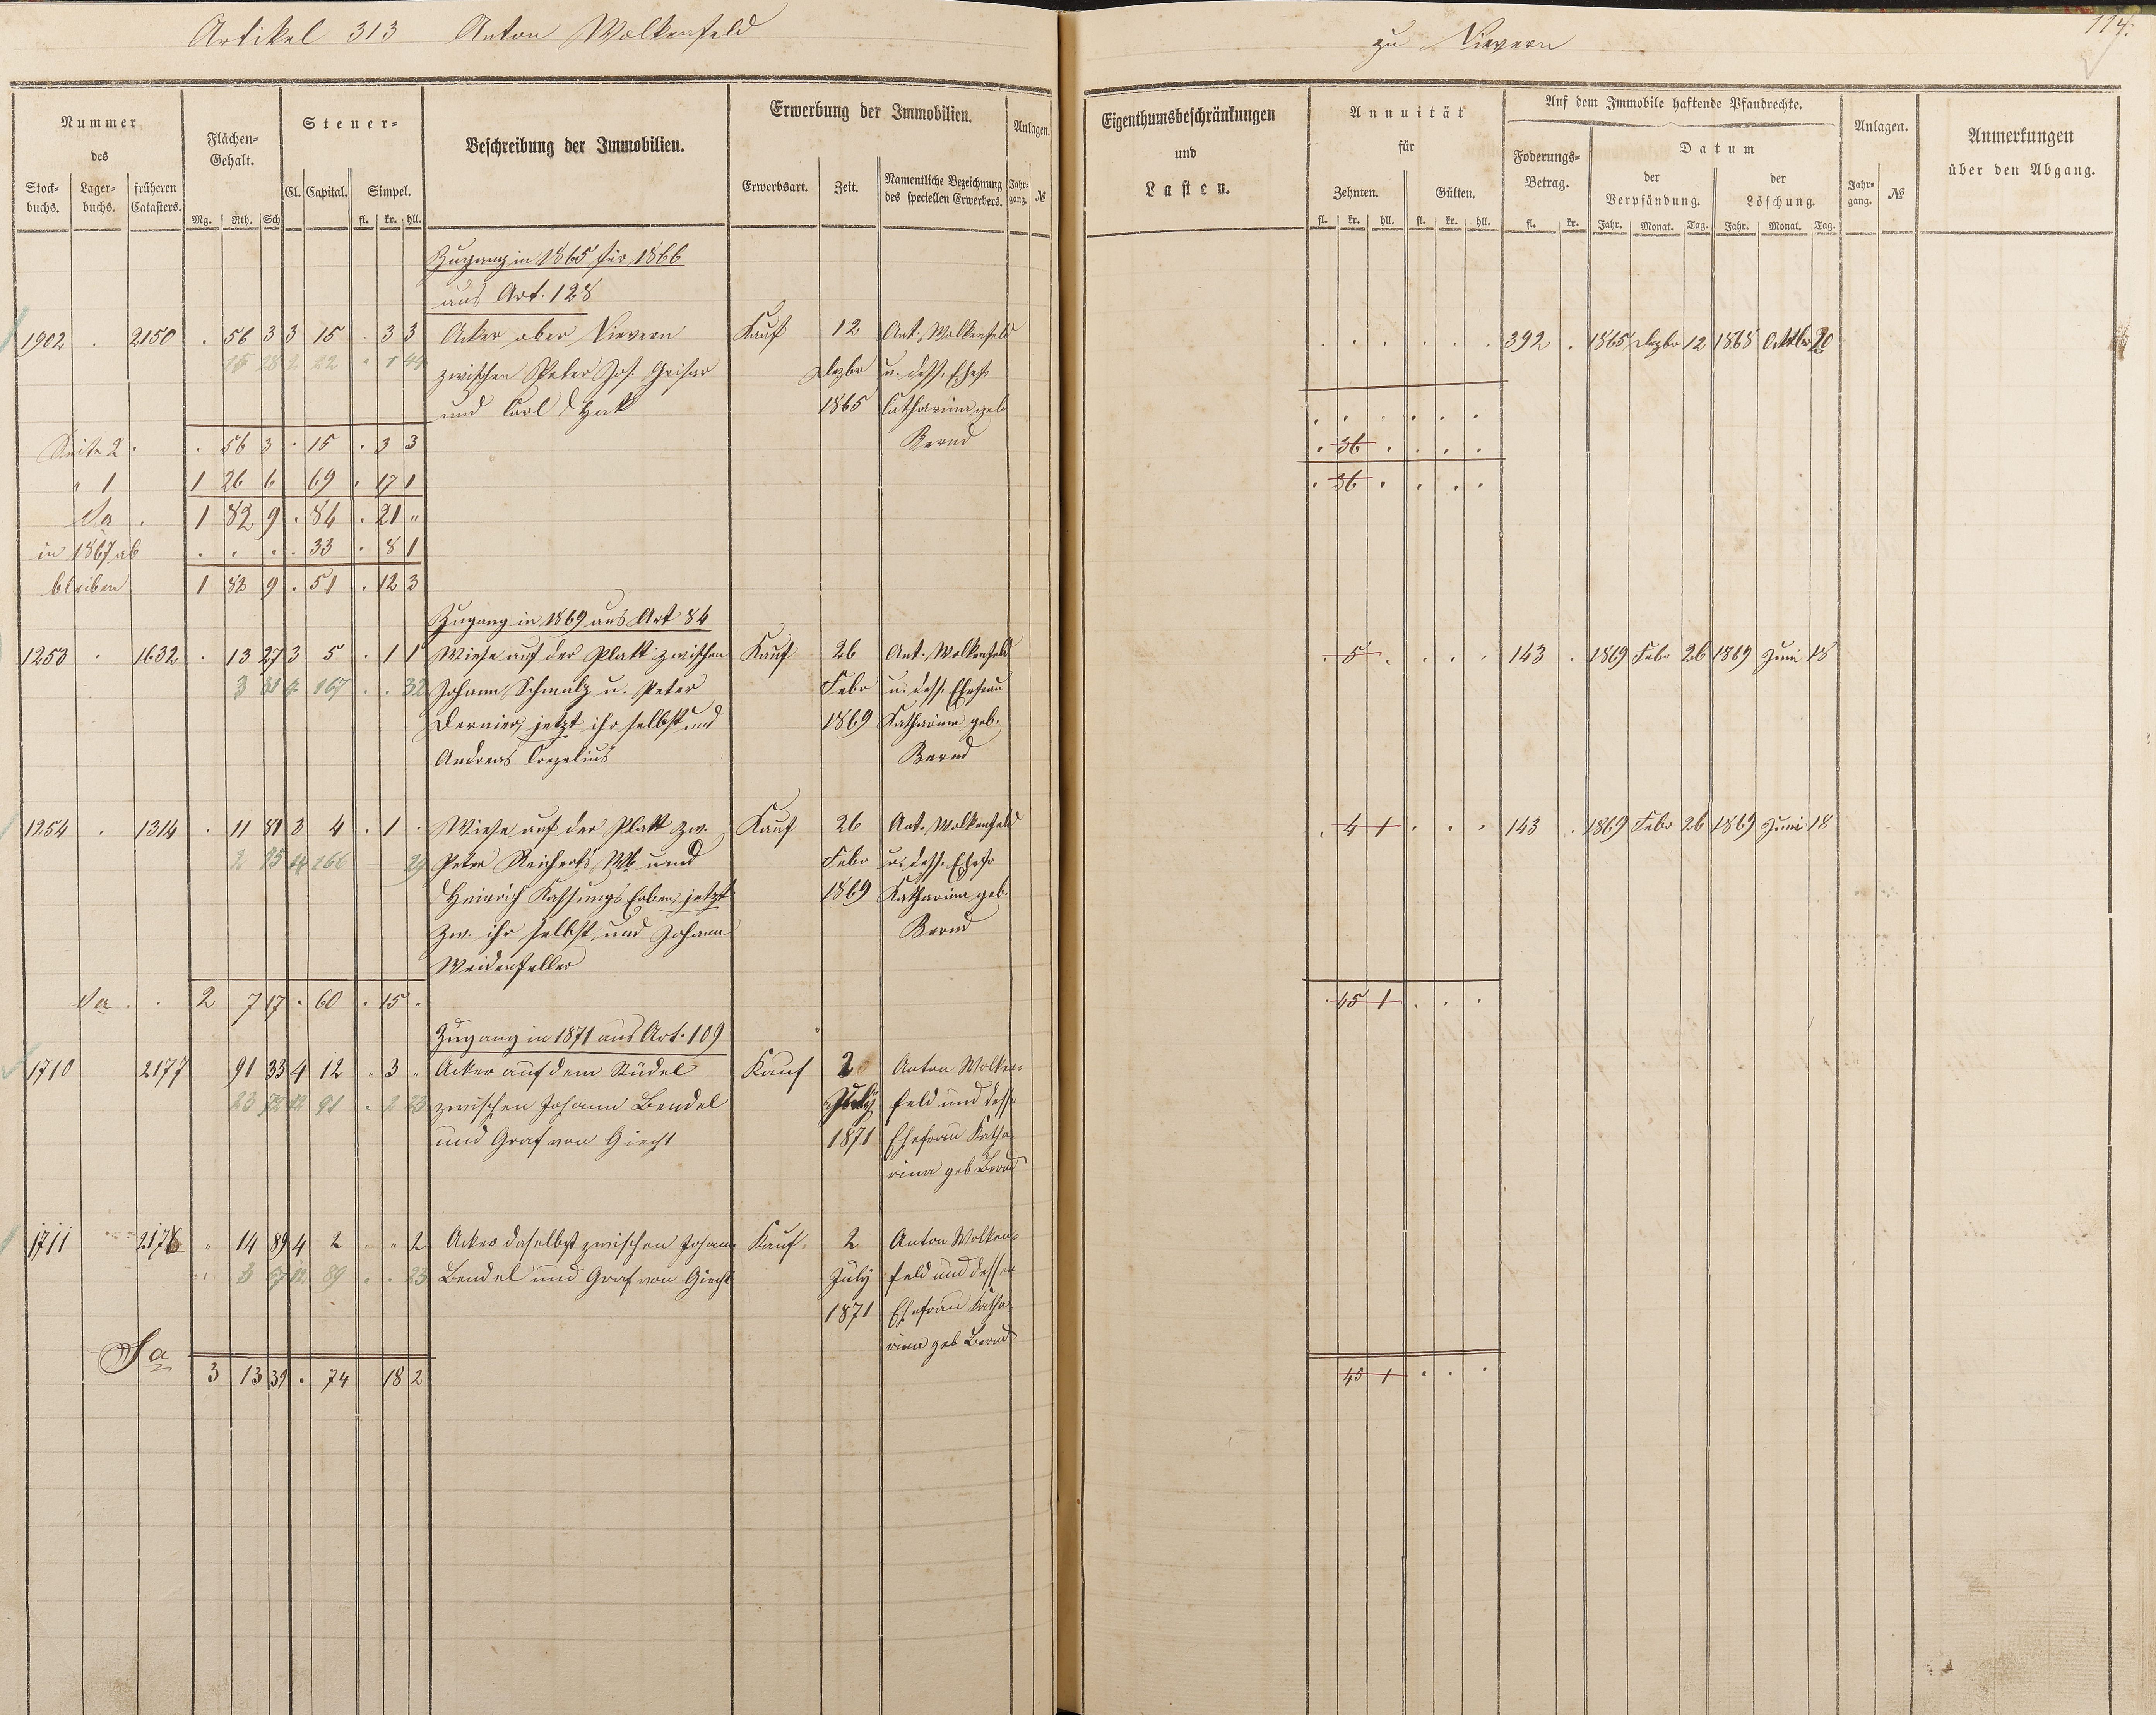 Artikel 313 Anton Wolkenfeld
zu Nievern
114.
Nummer
des
Stock-
buchs.
Lager-
buchs.
früheren
Catasters.
Flächen-
Gehalt.
Mg. Rth. Sch
Steuer-
Cl. Capital. Simpel.
fl. kr. hll.
Beschreibung der Immobilien.
Erwerbung der Immobilien.
Erwerbsart. Zeit. Namentliche Bezeichnung
des speciellen Erwerbers.
Anlagen.
Jahr-
gang. №
Eigenthumsbeschränkungen
und
Lasten.
Annuität
für
Zehnten. Gülten.
fl. kr. hll. fl. kr. hll.
Auf dem Immobile haftende Pfandrechte.
Foderungs-
Betrag.
fl. kr.
Datum
der
Verpfändung.
der
Löschung.
Jahr. Monat. Tag. Jahr. Monat. Tag.
Anlagen.
Jahr-
gang. №
Anmerkungen
über den Abgang.
Zugang in 1865 für 1866
aus Art. 128
1902 . 2150 . 56 3 3 15 . 3 3 Acker ober Nievern Kauf 12 Ant. Wolkenfeld . . . . . . 392 . 1865 Dezbr 12 1868 Octbr 20
15 28 2 22 . 1 44 zwischen Peter Jos. Grisar Dezbr u. dess. Ehefr
und Carl Heck 1865 Catharina geb
Bernd
Seite 2 . . 56 3 . 15 . 3 3 . 36 . . . .
" 1 1 26 6 69 . 17 1 . 36 . . . .
Sa . 1 82 9 . 84 . 21 "
in 1867 ab . . . . 33 . 8 1
bleiben 1 82 9 . 51 . 12 3
Zugang in 1869 aus Art 84
1253 . 1632 . 13 27 3 5 . 1 1 Wiese auf der Platt zwischen Kauf 26 Ant. Wolkenfeld . 5 . . . . 143 . 1869 Febr 26 1869 Juni 18
3 31 167 . . 32 Johann Schmalz u. Peter Febr u. dess. Ehefrau
Dernier, jetzt ihr selbst und 1869 Katharina geb.
Andreas Corzelius Bernd
1254 . 1314 . 11 81 3 4 . 1 . Wiese auf der Platt zw. Kauf 26 Ant. Wolkenfeld . 4 1 . . . 143 . 1869 Febr 26 1869 Juni 18
2 95 4 166 29 Peter Reicherts Wb und Febr u. dess. Ehefr
Heinrich Kassungs Erben, jetzt 1869 Katharina geb.
zw. ihr selbst und Johann Bernd
Weidenfeller
Sa . . 2 7 17 . 60 . 15 . . 45 1 . . .
Zugang in 1871 aus Art. 109
1710 2177 91 33 4 12 . 3 " Acker auf dem Rüdel Kauf 2 Anton Wolken-
23 91 . 2 23 zwischen Johann Bendel July feld und dess.
und Graf von Giech 1871 Ehefrau Katha-
rina geb Bernd
1711 2178 " 14 89 4 2 . " 2 Acker daselbst zwischen Johann Kauf 2 Anton Wolken-
3 89 . . 23 Bendel und Graf von Giech July feld und dessen
1871 Ehefrau Katha-
rina geb Bernd
Sa 3 13 39 . 74 18 2 45 1 . . .